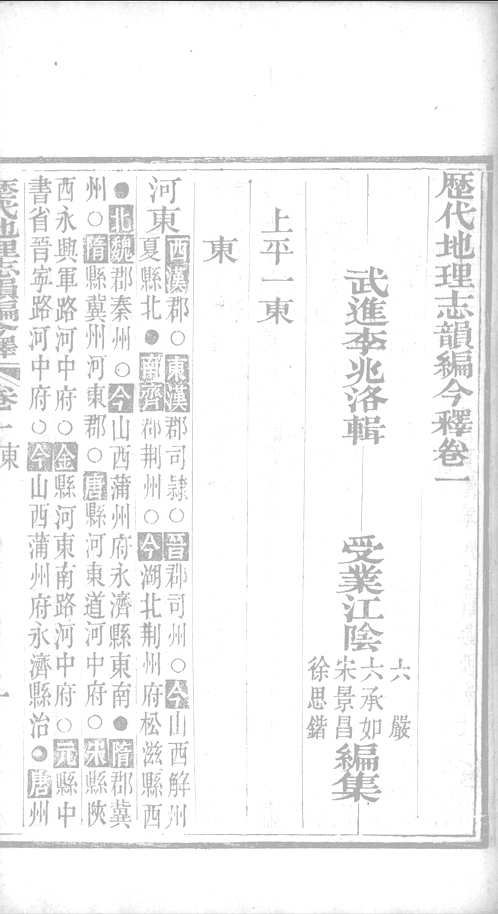 歷代地理志韻編今釋卷一
武進李兆洛輯
受業江陰
六嚴
六承如
宋景昌
徐思鍇
編集
上平一東
東
河東
西漢郡○東漢郡司隸○晉郡司州○今山西解州
夏縣北●南齊郡荆州○今湖北荆州府松滋縣西
●北魏郡秦州○今山西蒲州府永濟縣東南●隋郡冀
州○隋縣冀州河東郡○唐縣河東道河中府○宋縣陝
西永興軍路河中府○金縣河東南路河中府○元縣中
書省晉寧路河中府○今山西蒲州府永濟縣治●唐州
歷代地理志韻編今釋 卷一 東 一